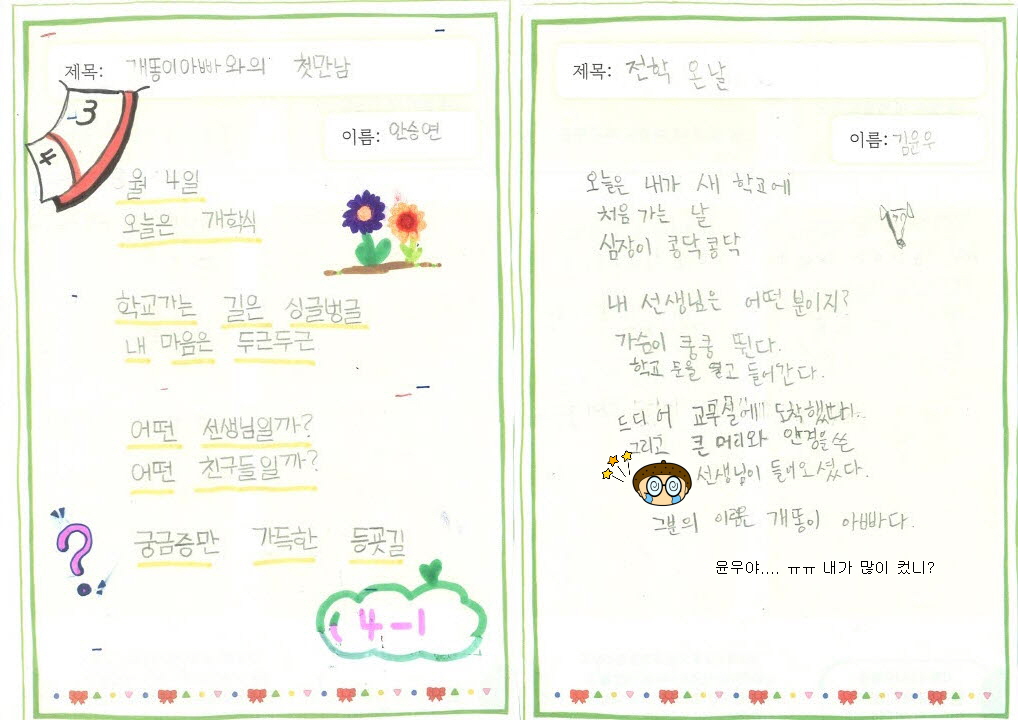 제목: 개똥이아빠와의 첫만남
이름: 안승연
3
4
월 4일
오늘은 개학식
학교가는 길은 싱글벙글
내 마음은 두근두근
어떤 선생님일까?
어떤 친구들일까?
?
궁금증만 가득한 등굣길
4-1
제목: 전학 온날
이름: 김윤우
오늘은 내가 새 학교에
처음 가는 날
심장이 콩닥콩닥
내 선생님은 어떤분이지?
가슴이 쿵쿵 뛴다.
학교 문을 열고 들어간다.
드디어 교무실에 도착했다.
그리고 큰 머리와 안경을쓴
선생님이 들어오셨다.
그분의 이름은 개똥이 아빠다.
윤우야.... ㅠㅠ 내가 많이 컸니?